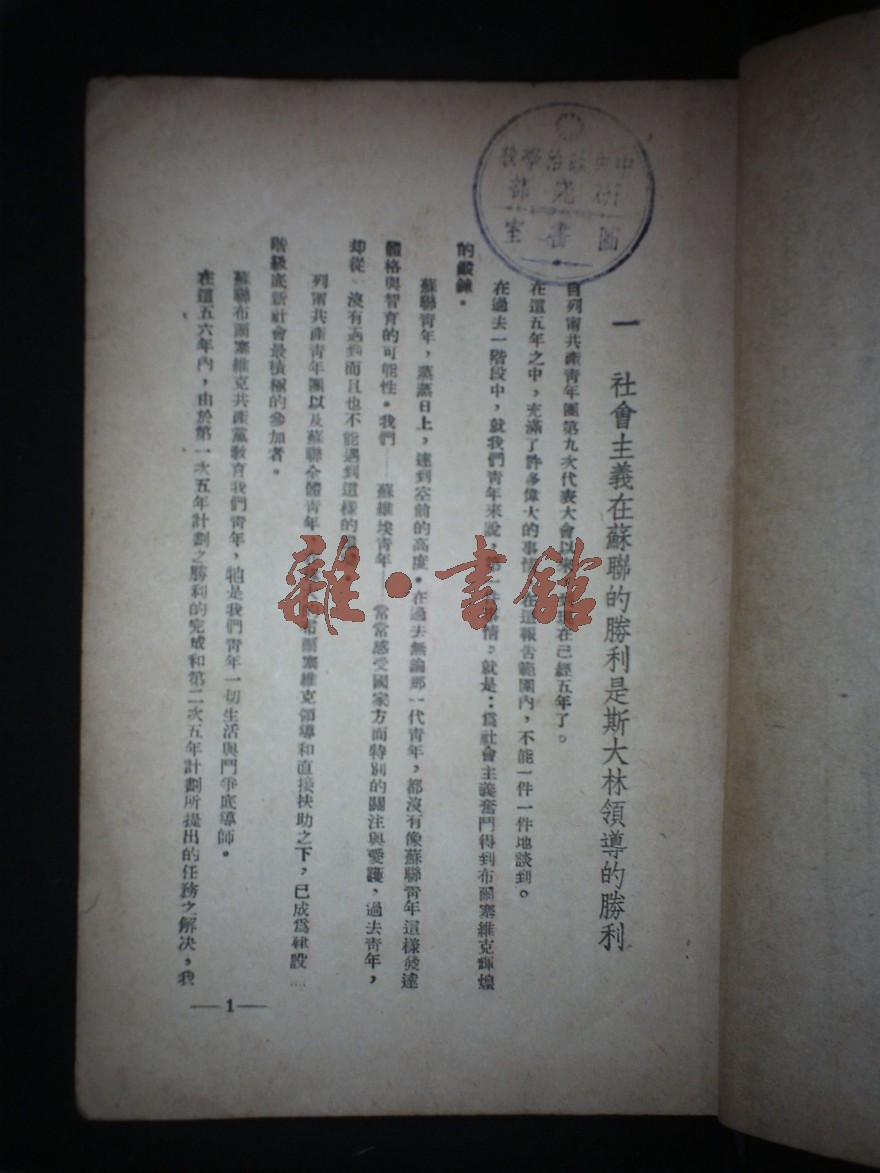 一 社會主義在蘇聯的勝利是斯大林領導的勝利
自列甯共產青年團第九次代表大會以來 在已經五年了。
在這五年之中，充滿了許多偉大的事情 在這報告範圍內，不能一件一件地談到。
在過去一階段中，就我們青年來說， 一件 情，就是：爲社會主義奮鬥得到布爾塞維克輝煌
的鍛鍊。
蘇聯青年，蒸蒸日上，達到空前的高度。在過去無論那一代青年，都沒有像蘇聯青年這樣發達
體格與智育的可能性。我們——蘇維埃青年——常常感受國家方面特別的關注與愛護，過去青年，
却從 沒有遇到而且也不能遇到這樣的
列甯共產青年團以及蘇聯全體青年 布爾塞維克領導和直接扶助之下，已成爲建設
階級底新社會最積極的參加者。
蘇聯布爾塞維克共產黨教育我們青年，牠是我們青年一切生活與鬥爭底導師。
在這五六年內，由於第一次五年計劃之勝利的完成和第二次五年計劃所提出的任務之解決，我
—1—
中央政治學校
研究部
圖書室
雜·書館